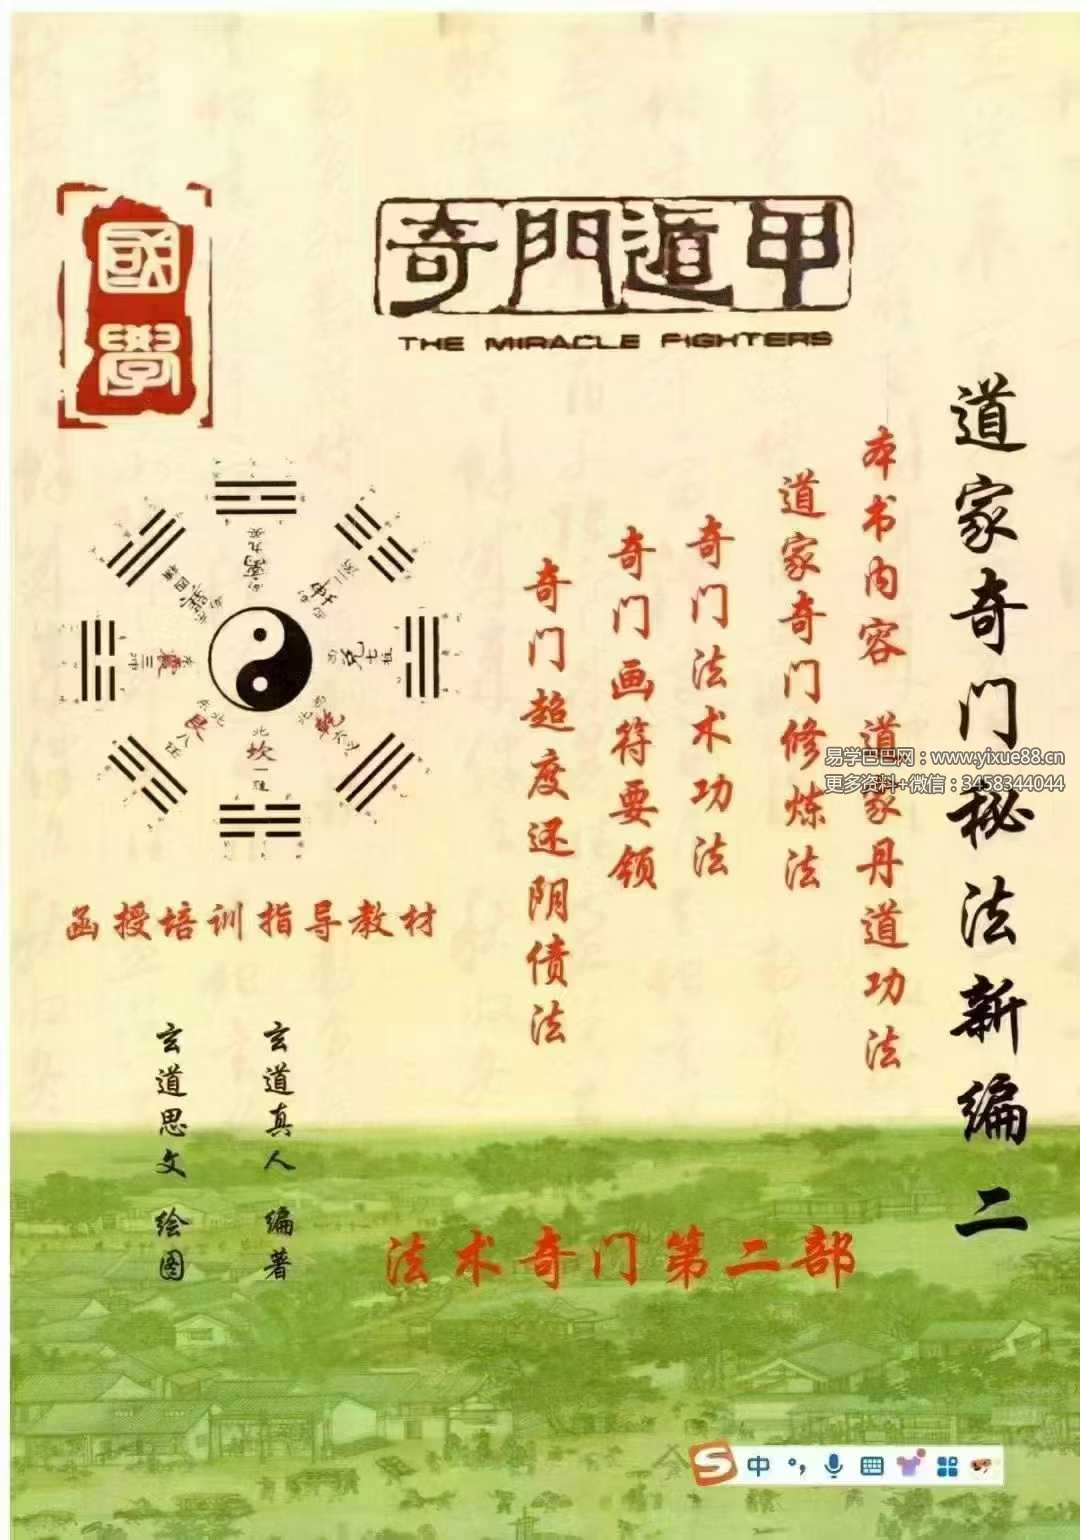 國學
奇門遁甲
THE MIRACLE FIGHTERS
道家奇门秘法新编二
本书内容 道家丹道功法
道家奇门修炼法
奇门法术功法
奇门画符要领
奇门超度还阴债法
易学巴巴网：www.yixue88.cn
更多资料+微信：3458344044
离九
兑七
乾六
北
坎一
东北
艮八
震三
四
函授培训指导教材
玄道真人 编著
玄道思文 绘图
法术奇门第二部
S中